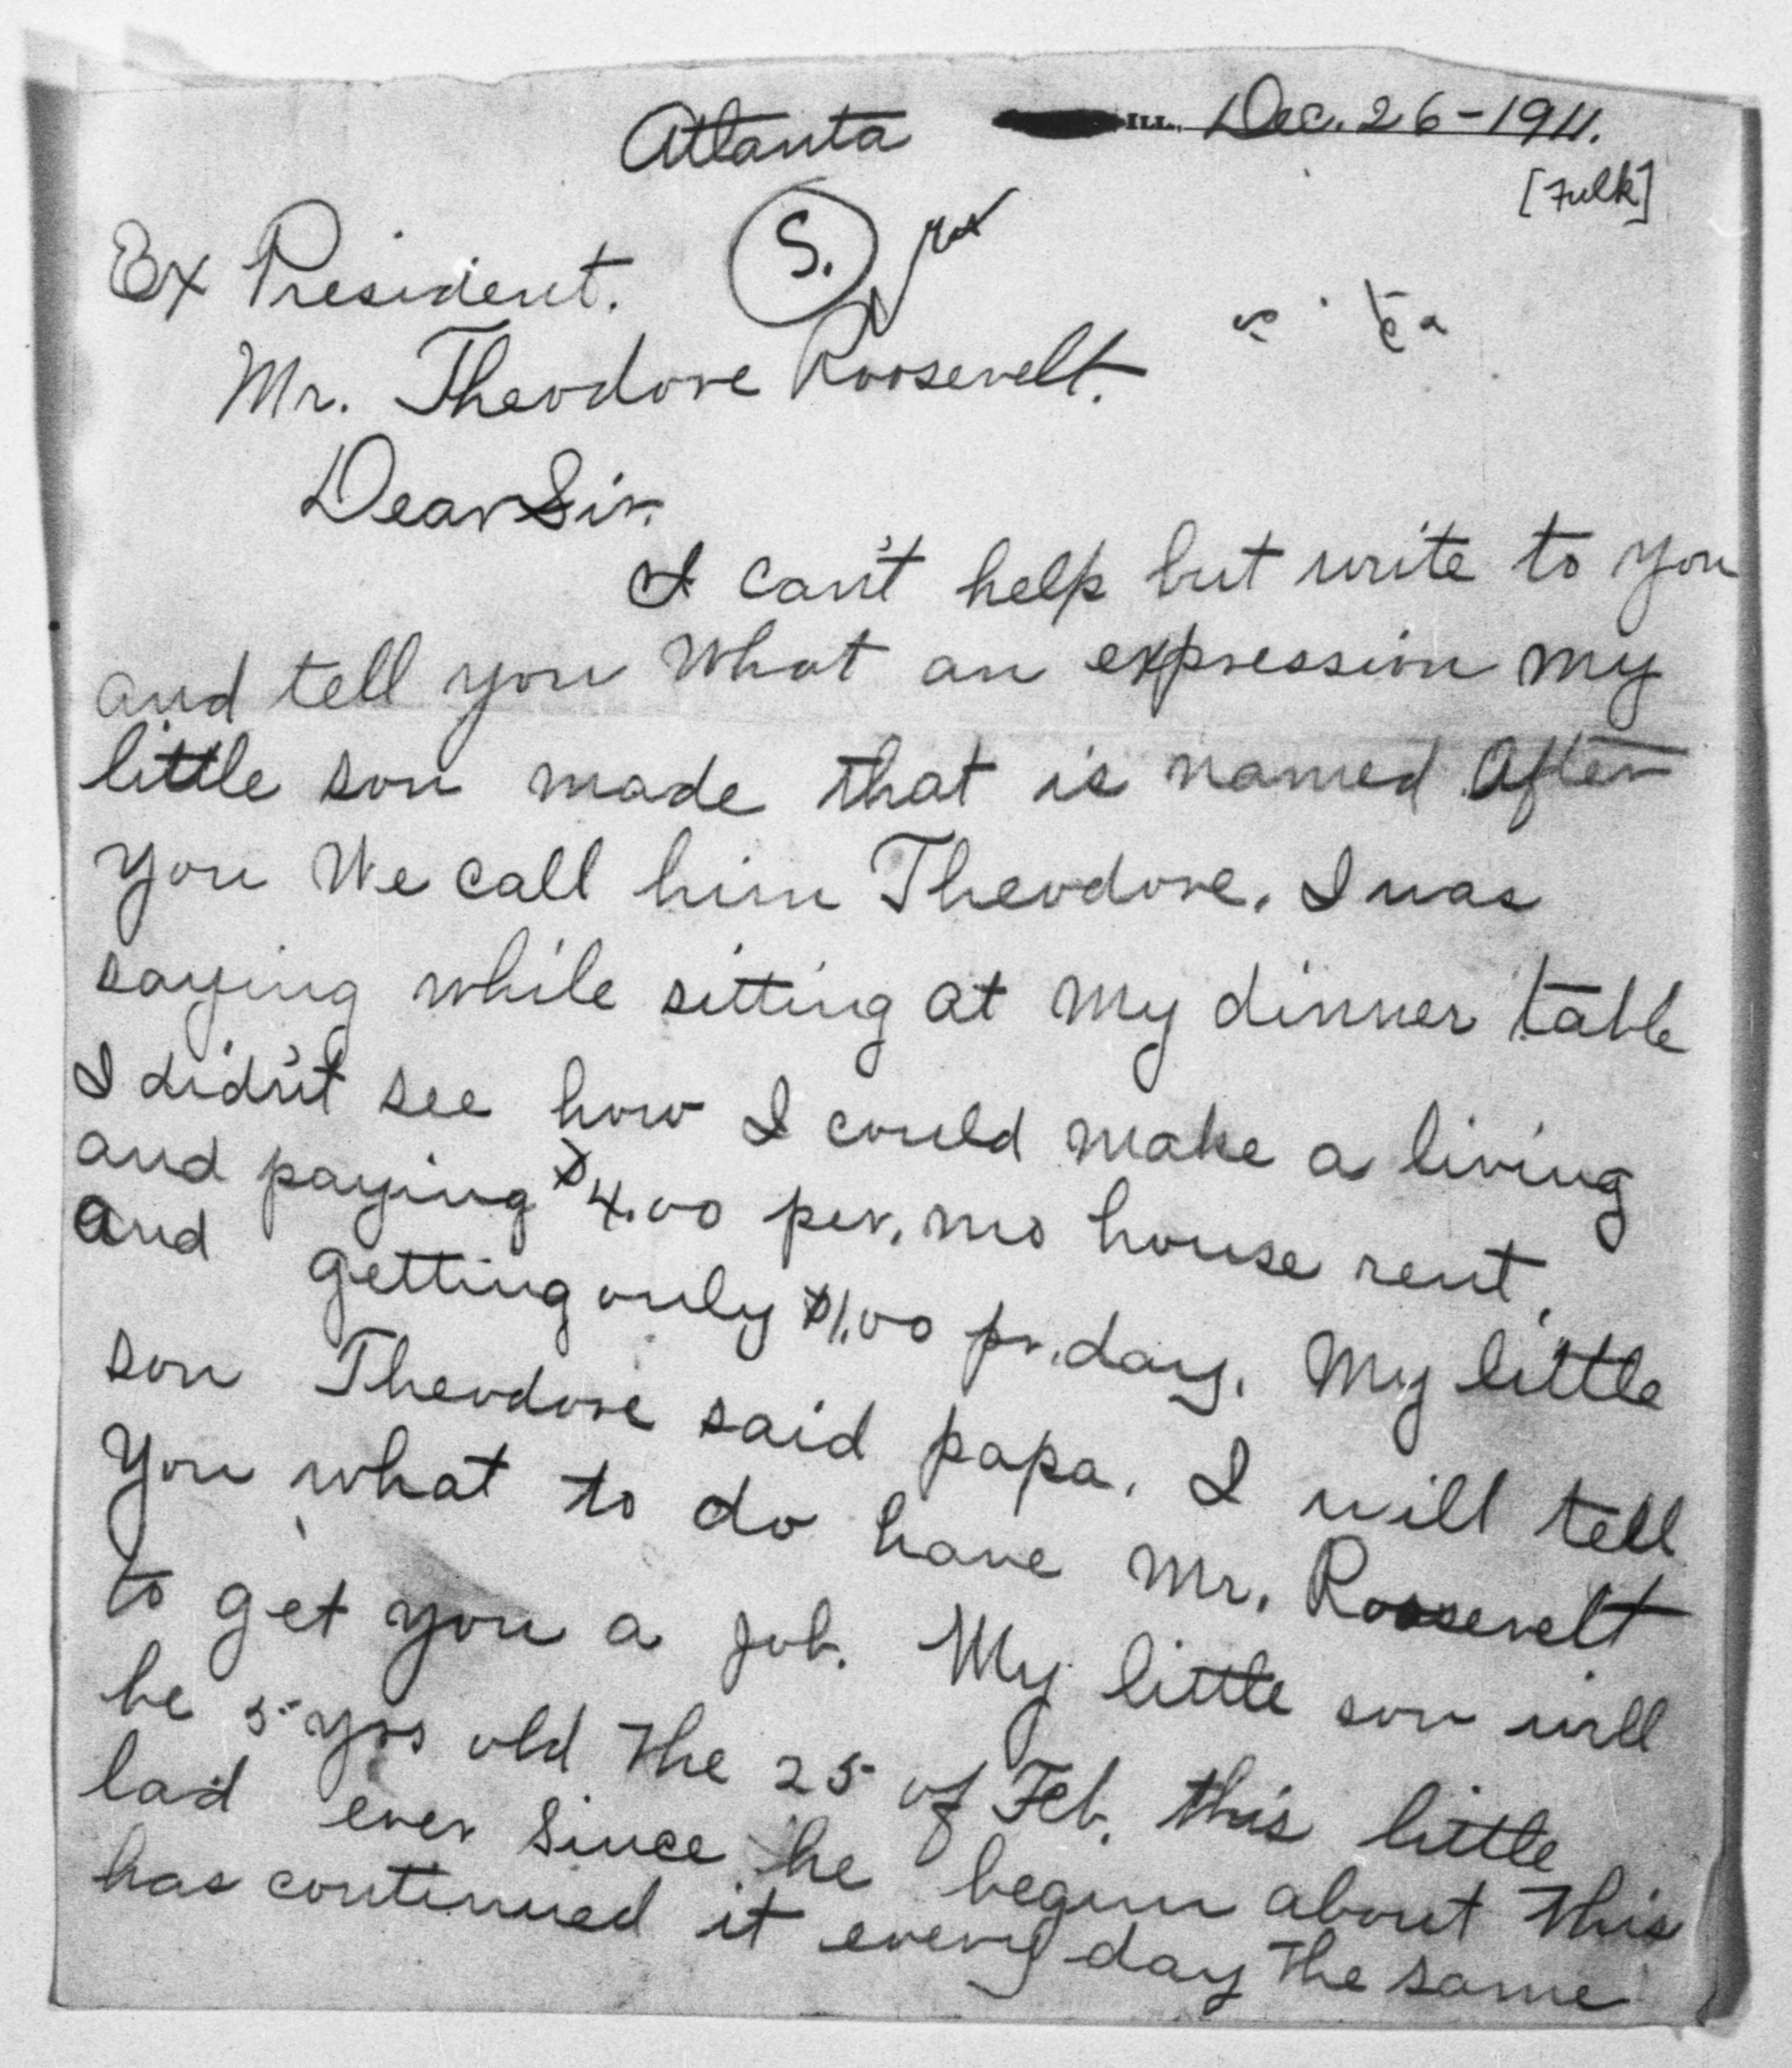 Atlanta ILL. Dec. 26-1911.
[Fulk]
S.
Ex President.
Mr. Theodore Roosevelt.
Dear Sir.
I can't help but write to you
and tell you what an expression my
little son made that is named after
you We call him Theodore. I was
saying while sitting at my dinner table
I didn't see how I could make a living
and paying $4.00 per. mo house rent.
and getting only $1.00 pr. day. My little
son Theodore said papa. I will tell
you what to do have Mr. Roosevelt
to get you a job. My little son will
be 5 yrs old the 25 of Feb. this little
lad ever since he begun about this
has continued it every day the same